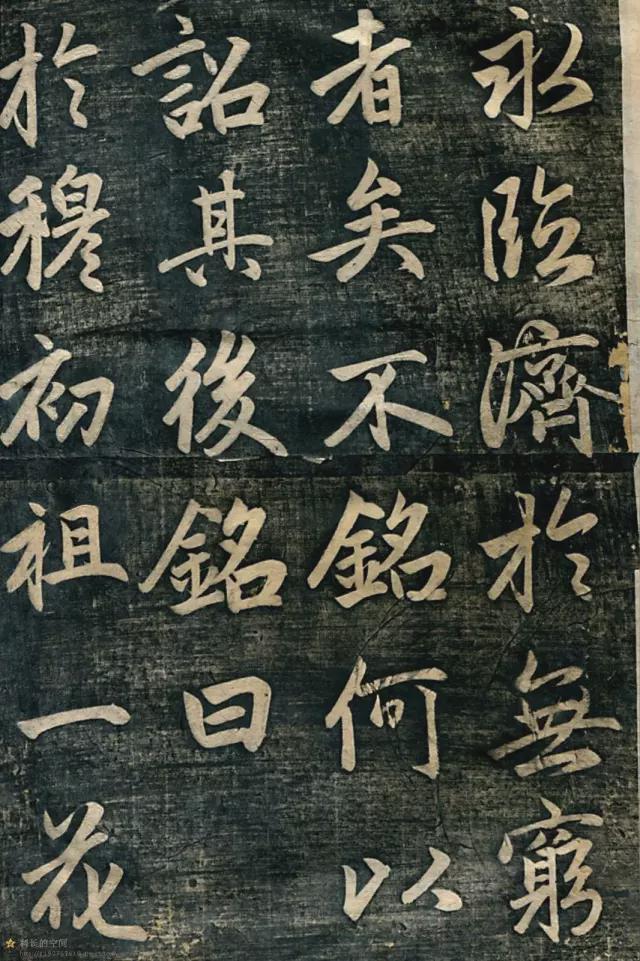 永臨濟於無窮
者矣不銘何以
詔其後銘曰
於穆初祖一花
科长的空间